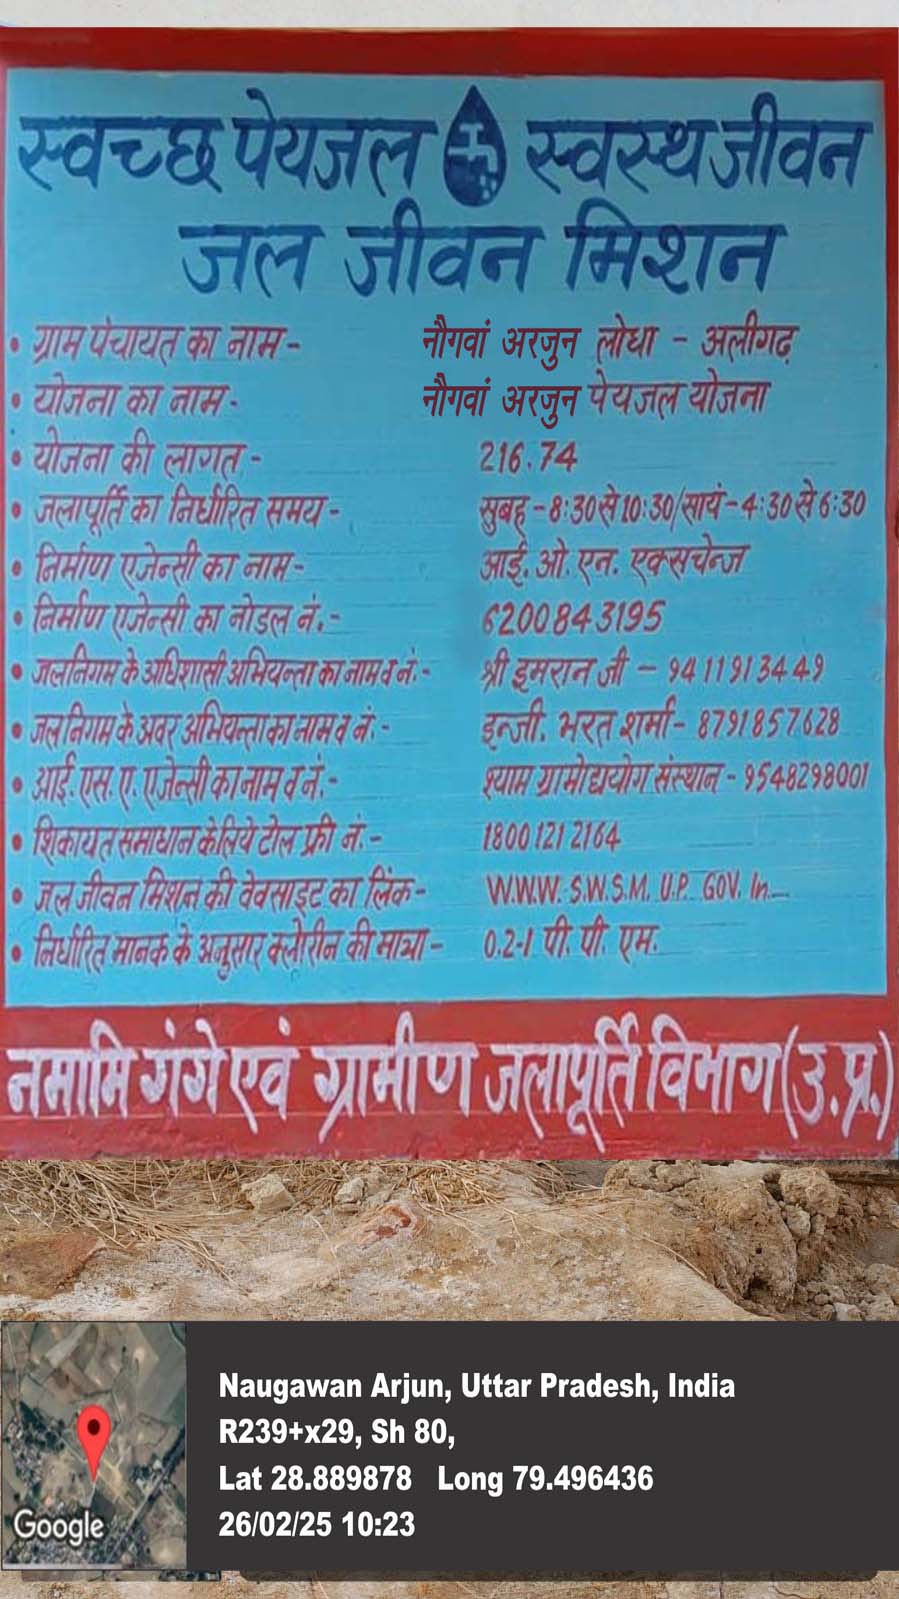 स्वच्छ पेयजल स्वस्थ जीवन
जल जीवन मिशन
• ग्राम पंचायत का नाम - नौगवां अरजुन लोधा - अलीगढ़
• योजना का नाम - नौगवां अरजुन पेयजल योजना
• योजना की लागत - 216.74
• जलापूर्ति का निर्धारित समय - सुबह - 8:30 से 10:30/सायं - 4:30 से 6:30
• निर्माण एजेन्सी का नाम - आई. ओ. एन. एक्सचेन्ज
• निर्माण एजेन्सी का नोडल नं. - 6200843195
• जलनिगम के अधिशासी अभियन्ता का नाम व नं. - श्री इमरान जी - 9411913449
• जलनिगम के अवर अभियन्ता का नाम व नं. - इन्जी. भरत शर्मा - 8791857628
• आई. एस. ए. एजेन्सी का नाम व नं. - श्याम ग्रामोद्ययोग संस्थान - 9548298001
• शिकायत समाधान के लिये टोल फ्री नं. - 18001212164
• जल जीवन मिशन की वेवसाइट का लिंक - W.W.W. S.W.S.M. U.P. GOV. In
• निर्धारित मानक के अनुसार क्लोरीन की मात्रा - 0.2-1 पी. पी. एम.
नमामि गंगे एवं ग्रामीण जलापूर्ति विभाग (उ.प्र.)
Naugawan Arjun, Uttar Pradesh, India
R239+x29, Sh 80,
Lat 28.889878 Long 79.496436
26/02/25 10:23
Google